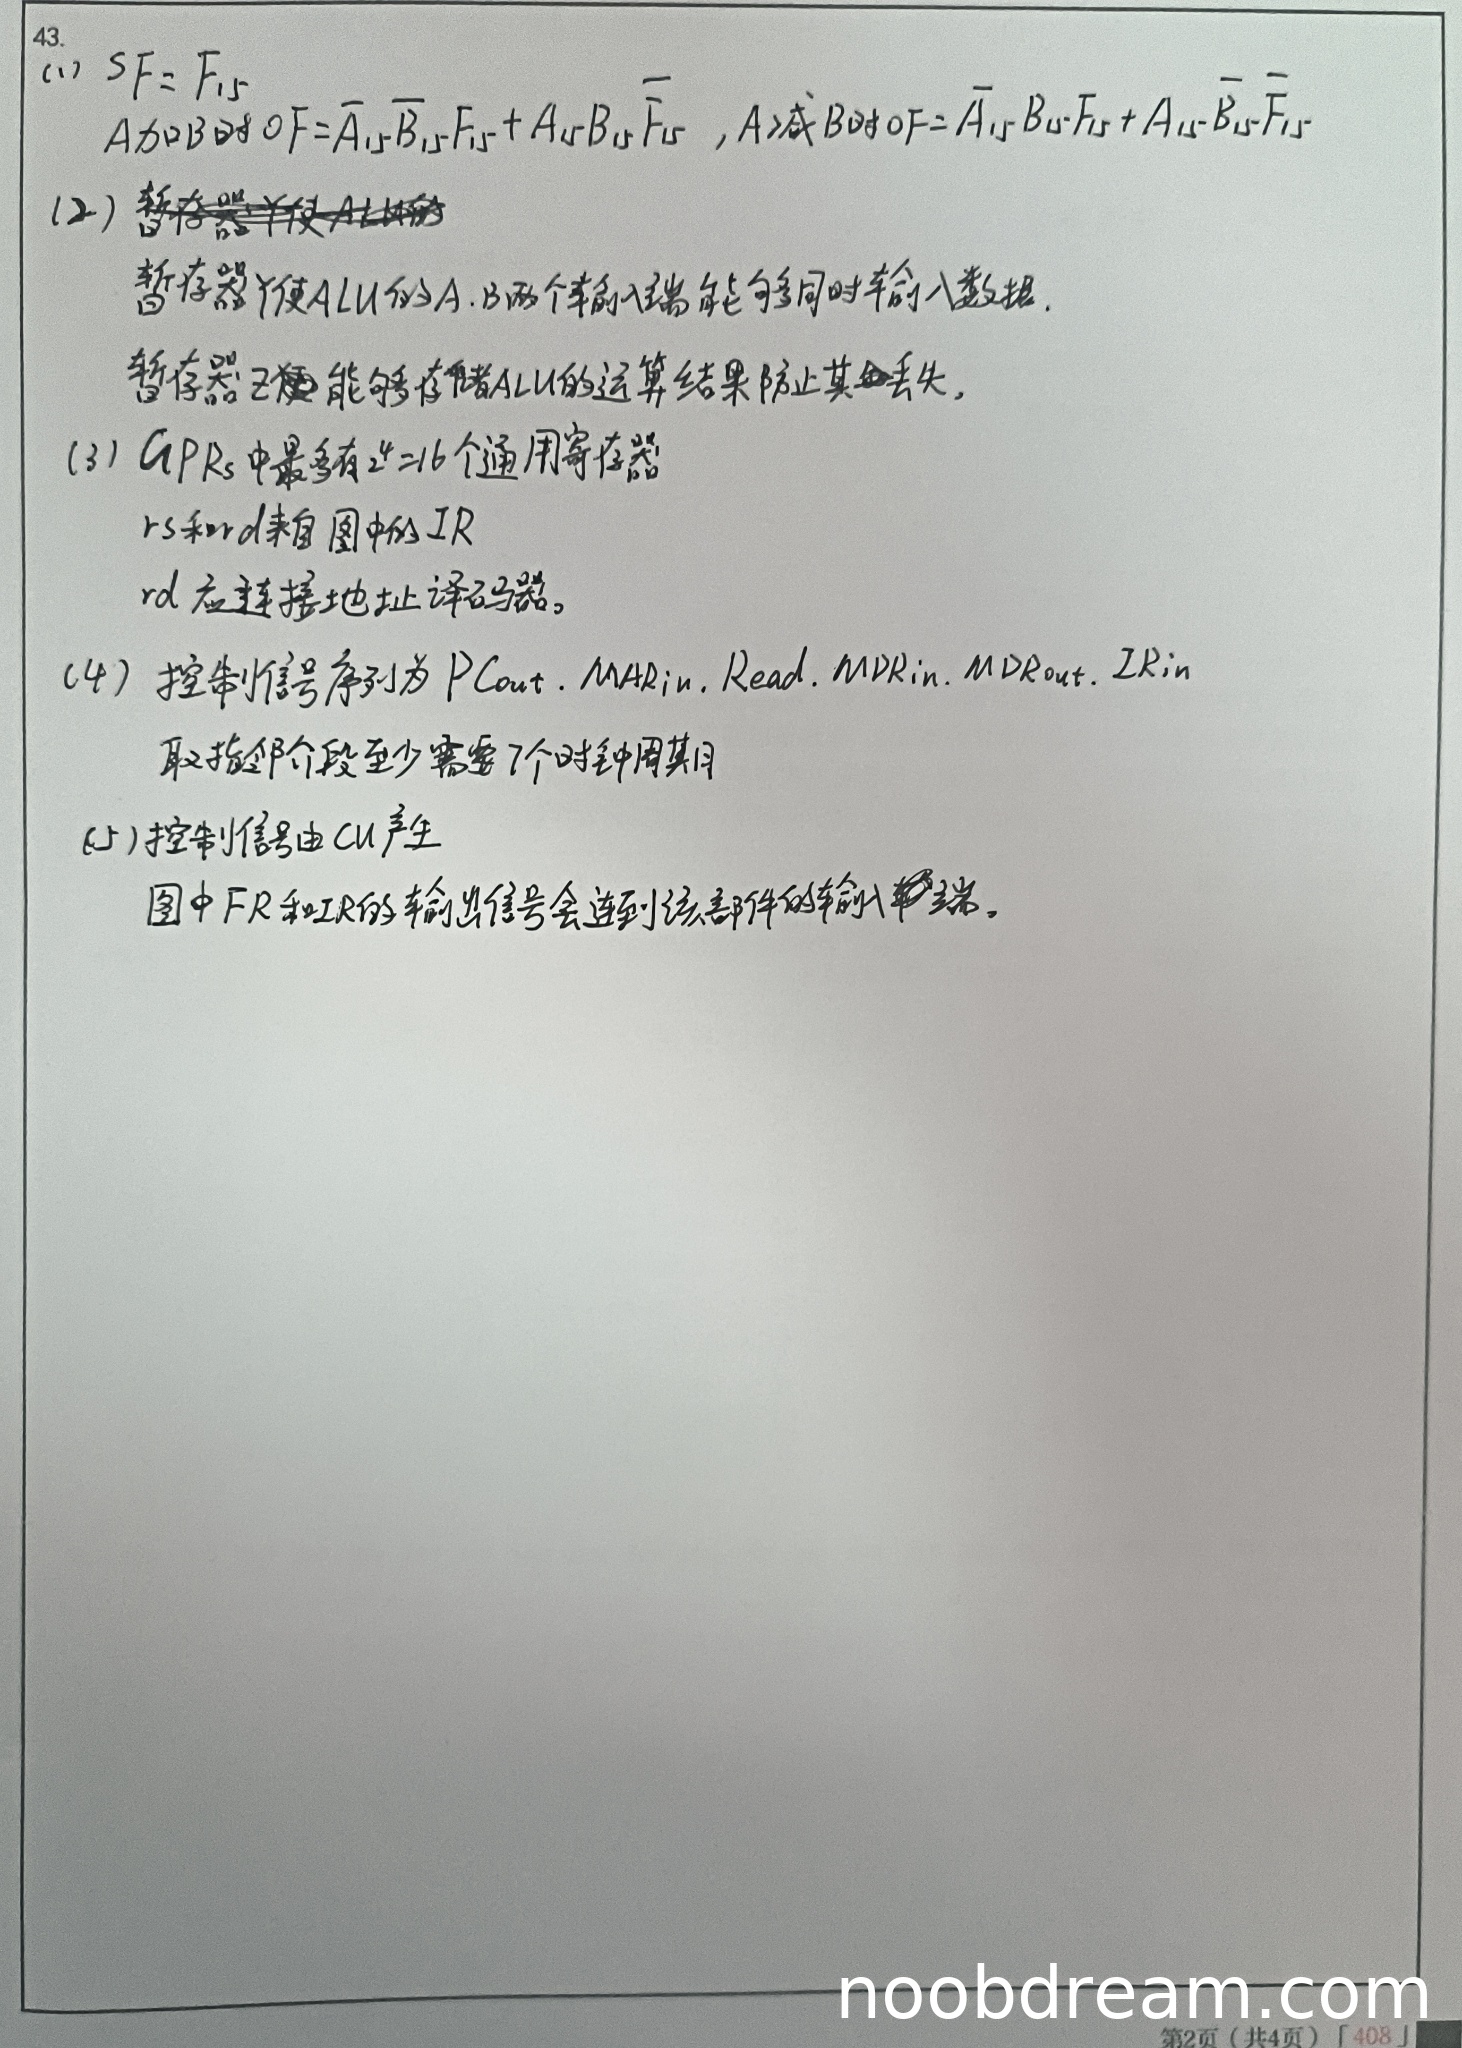 43.
(1) SF = F₁₅
A加B时OF = A̅₁₅B̅₁₅F₁₅ + A₁₅B₁₅F̅₁₅ , A减B时OF = A̅₁₅B₁₅F₁₅ + A₁₅B̅₁₅F̅₁₅
(2) 暂存器Y使ALU的
暂存器Y使ALU的A.B两个输入端能够同时输入数据.
暂存器Z能够存储ALU的运算结果防止其丢失。
(3) GPRs中最多有2⁴=16个通用寄存器
rs和rd来自图中的IR
rd应连接地址译码器。
(4) 控制信号序列为 PCout. MARin. Read. MDRin. MDRout. IRin
取指阶段至少需要7个时钟周期
(5) 控制信号由CU产生
图中FR和IR的输出信号会连到该部件的输入端。
noobdream.com
第2页(共4页)「408」